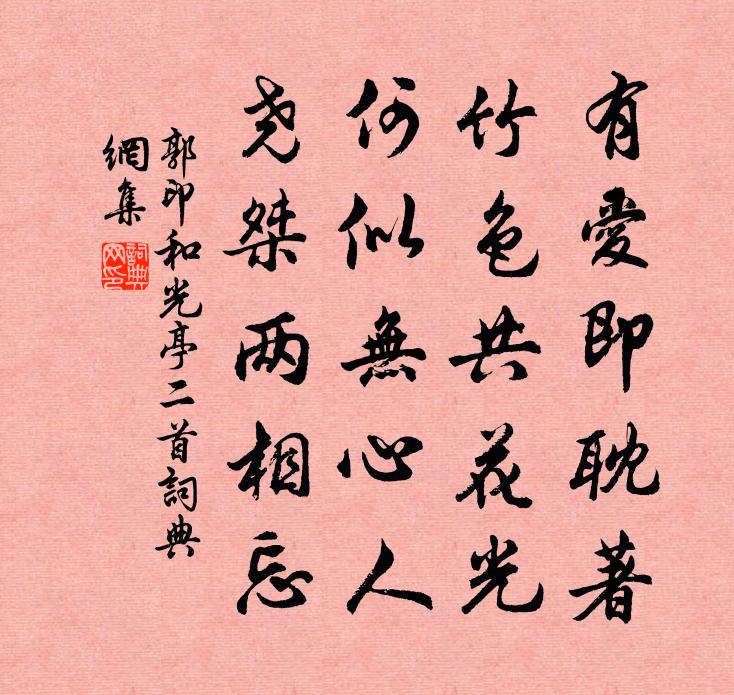 有愛即耽著
竹色共花光
何似無心人
尧桀两相忘
郭印和光亭二首詞典
網集
詞典
网印